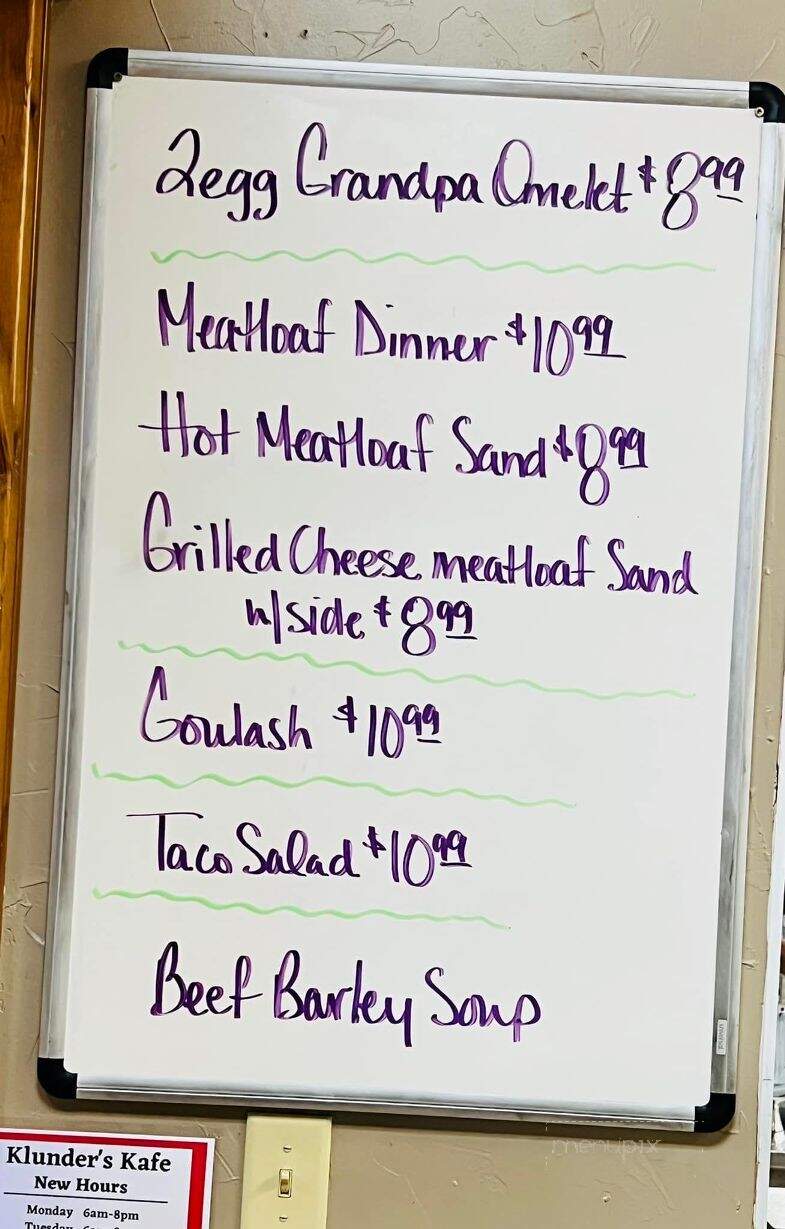 2egg Grandpa Omelet $8.99
Meatloaf Dinner $10.99
Hot Meatloaf Sand $8.99
Grilled Cheese meatloaf Sand
w/side $8.99
Goulash $10.99
Taco Salad $10.99
Beef Barley Soup
menupix
Klunder's Kafe
New Hours
Monday 6am-8pm